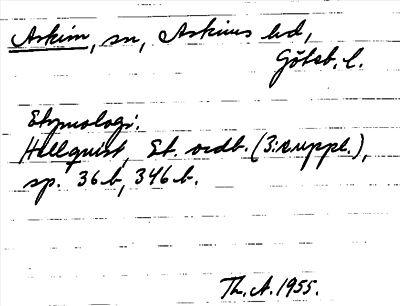 Askim, sn, Askims hd,
Göteb. l.
Etymologi.
Hellquist, Et. ordb. (3:e uppl.),
sp. 36 b, 346 b.
Th. A. 1955.